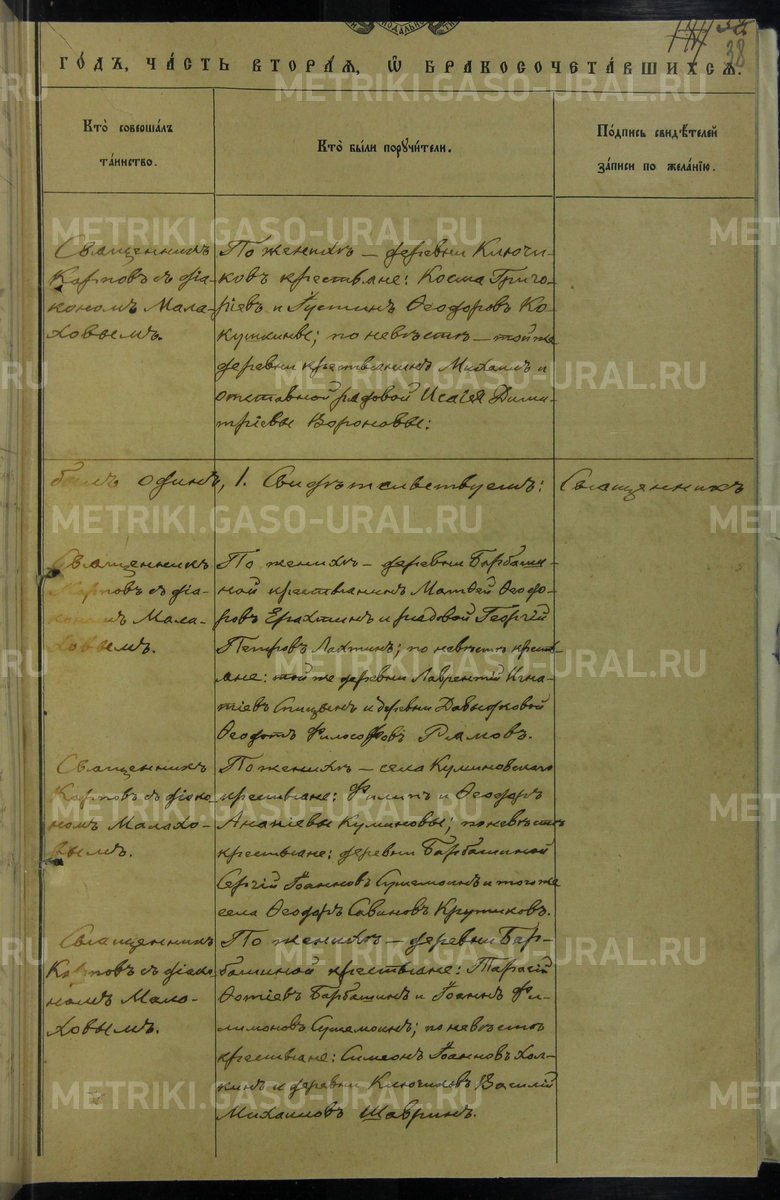 38
ГО́ДЪ, ЧА́СТЬ ВТОРА́Я, Ѿ БРАКОСОЧЕТА́ВШИХСЯ.
Кто̀ соверша́лъ
та́инство.
Кто̀ бы́ли порꙋчи́тели.
По́дпись свидѣ́телей
за́писи по жела́нїю.
METRIKI.GASO-URAL.RU
Священникъ
Карповъ съ діа-
кономъ Мала-
ховымъ.
По женихѣ – деревни Ключи-
ковъ крестьяне: Косма Григо-
ріевъ и Іустинъ Ѳеодоровъ Ко-
кушкины; по невѣстѣ – той же
деревни крестьянинъ Михаилъ и
отставной рядовой Исаія Дими-
тріевы Вороновы:
былъ одинъ, 1. Свидѣтельствуемъ: Священникъ
Священникъ
Карповъ съ діа-
кономъ Мала-
ховымъ.
По женихѣ – деревни Барбаши-
ной крестьянинъ Матѳей Ѳеодо-
ровъ Ерахтинъ и рядовой Георгій
Петровъ Лахтинъ; по невѣстѣ крестья-
ане: той же деревни Лаврентій Игна-
тіевъ Спицынъ и деревни Давыдковой
Ѳеодотъ Философовъ Рямовъ.
Священникъ
Карповъ съ діако-
номъ Малахо-
вымъ.
По женихѣ – села Куминовскаго
крестьяне: Филипъ и Ѳеодоръ
Ананіевы Куминовы; по невѣстѣ
крестьяне: деревни Барбашиной
Сергій Іоанновъ и тогоже
села Ѳеодоръ Савиновъ Крутиковъ.
Священникъ
Карповъ съ діако-
номъ Мало-
ховымъ.
По женихѣ – деревни Бар-
башиной крестьяне: Тарасій
Фотіевъ Барбашинъ и Іоаннъ Фи-
лимоновъ; по невѣстѣ
крестьяне: Симеонъ Іоанновъ Хол-
кинъ и деревни Ключиковъ Василій
Михаиловъ Шавринъ.